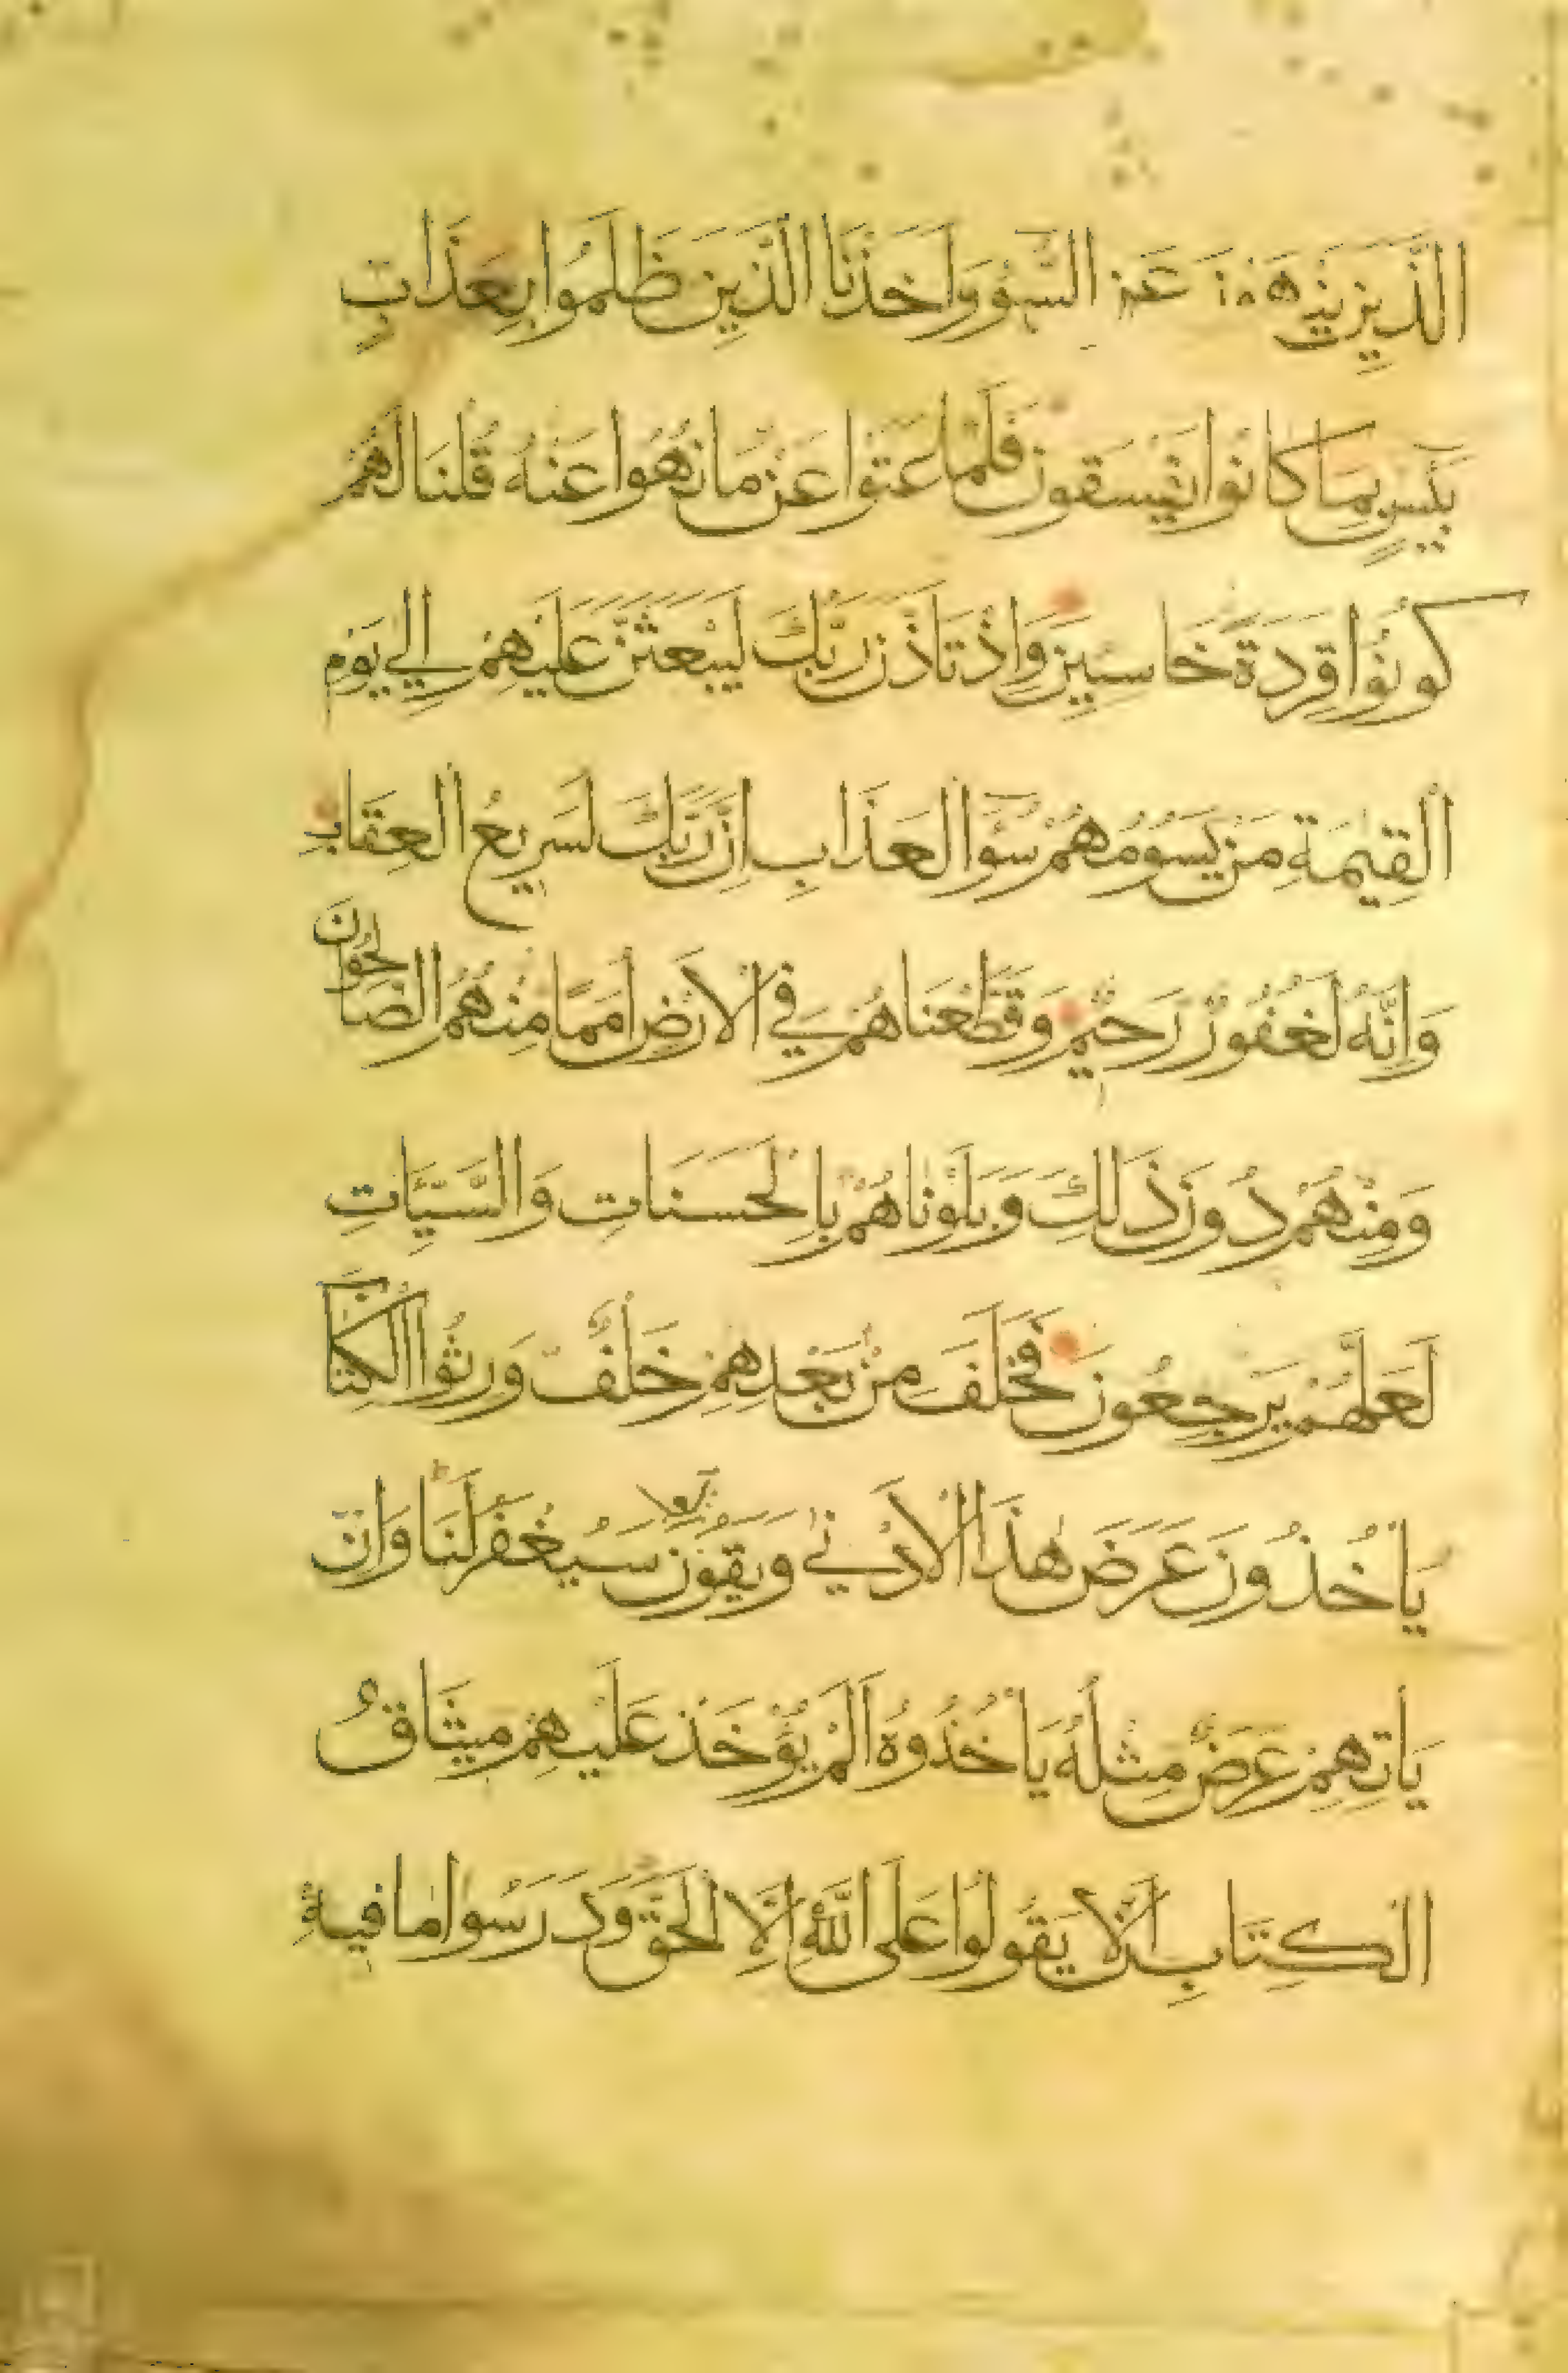 الَّذِينَ يَنْهَوْنَ عَنِ السُّوءِ وَاَخَذْنَا الَّذِينَ ظَلَمُوا بِعَذَابٍ
بَئِيسٍ بِمَا كَانُوا يَفْسُقُونَ فَلَمَّا عَتَوْا عَنْ مَا نُهُوا عَنْهُ قُلْنَا لَهُمْ
كُونُوا قِرَدَةً خَاسِئِينَ وَاِذْ تَاَذَّنَ رَبُّكَ لَيَبْعَثَنَّ عَلَيْهِمْ اِلَي يَوْمِ
الْقِيٰمَةِ مَنْ يَسُومُهُمْ سُوٓءَ الْعَذَابِ اِنَّ رَبَّكَ لَسَرِيعُ الْعِقَابِ
وَاِنَّهُ لَغَفُورٌ رَحِيمٌ وَقَطَّعْنَاهُمْ فِي الْاَرْضِ اُمَمًا مِنْهُمُ الصَّالِحُونَ
وَمِنْهُمْ دُونَ ذَلِكَ وَبَلَوْنَاهُمْ بِالْحَسَنَاتِ وَالسَّيِّئَاتِ
لَعَلَّهُمْ يَرْجِعُونَ فَخَلَفَ مِنْ بَعْدِهِمْ خَلْفٌ وَرِثُوا الْكِتَابَ
يَاْخُذُونَ عَرَضَ هٰذَا الْاَدْنٰي وَيَقُولُونَ سَيُغْفَرُ لَنَا وَاِنْ
يَاْتِهِمْ عَرَضٌ مِثْلُهُ يَاْخُذُوهُ اَلَمْ يُؤْخَذْ عَلَيْهِمْ مِيثَاقُ
الْكِتَابِ اَنْ لَا يَقُولُوا عَلَى اللّٰهِ اِلَّا الْحَقَّ وَدَرَسُوا مَا فِيهِ